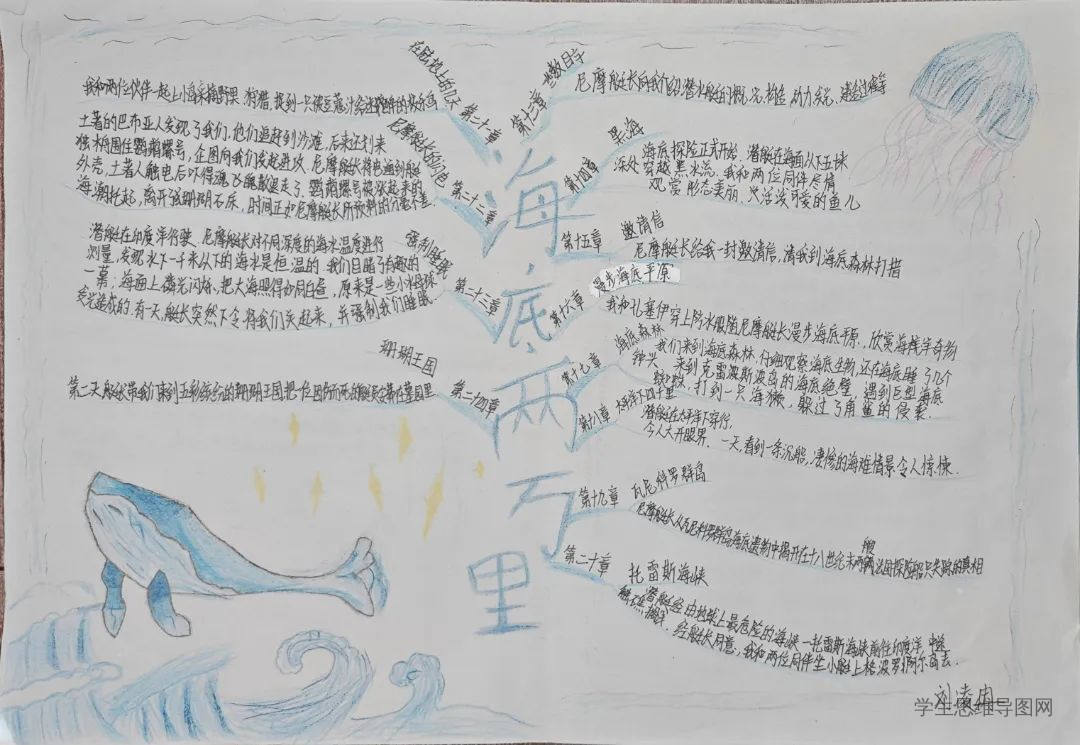 海底两万里
第十三章
一些数目字
尼摩艇长向我介绍潜水艇的概况、构造、动力系统、建造过程等
第十四章
黑潮
海底探险正式开始，潜艇在海面以下五十
深处穿越黑水流。我和两位同伴尽情
观赏形态美丽、灵活可爱的鱼儿
第十五章
邀请信
尼摩艇长给我一封邀请信，请我到海底森林打猎
第十六章
漫步海底平原
我和孔塞伊穿上防水服随尼摩艇长漫步海底平原，欣赏海底美奇物
第十七章
海底森林
我们来到海底森林，仔细观察海底生物，还在海底睡了几个
钟头，来到克雷波斯波岛的海底绝壁，遇到巨型海底
蜘蛛，打到一只海獭，躲过了角鲨的侵袭。
第十八章
太平洋下四千里
潜艇在太平洋下穿行，
令人大开眼界。一天，看到一条沉船，凄惨的海难情景令人惊悚。
第十九章
瓦尼科罗群岛
尼摩艇长从瓦尼科罗群岛海底遗物中揭开在十八世纪末两艘法国探险船只失踪的真相
第二十章
托雷斯海峡
潜艇经由地球上最危险的海峡—托雷斯海峡前往印度洋，中途
触礁搁浅。经艇长同意，我和两位同伴坐小艇上格波罗阿尔岛去。
第二十章
在陆地上的几天
我和两位伙伴一起上小岛采摘野果、狩猎，捉到一只被豆蔻汁
第二十二章
尼摩艇长的闪电
土著的巴布亚人发现了我们，他们追赶到沙滩，后来还划来
独木舟围住鹦鹉螺号，企图向我们发起进攻。尼摩艇长将电通到艇
外壳，土著人触电后吓得魂飞魄散逃走了。鹦鹉螺号被涨起来的
海潮托起，离开了珊瑚石床，时间正如尼摩艇长所预料的分毫不差。
第二十三章
强制睡眠
潜艇在印度洋行驶。尼摩艇长对不同深度的海水温度进行
测量，发现水下一千米以下的海水是恒温的。我们目睹了有趣的
一幕：海面上磷光闪烁，把大海照得如同白昼，原来是一些小水母
发光造成的。有一天，艇长突然下令将我们关起来，并强制我们睡眠。
第二十四章
珊瑚王国
第二天，艇长带我们来到五彩缤纷的珊瑚王国，把一位因伤而死的艇员安葬在墓园里。
学生思维导图网